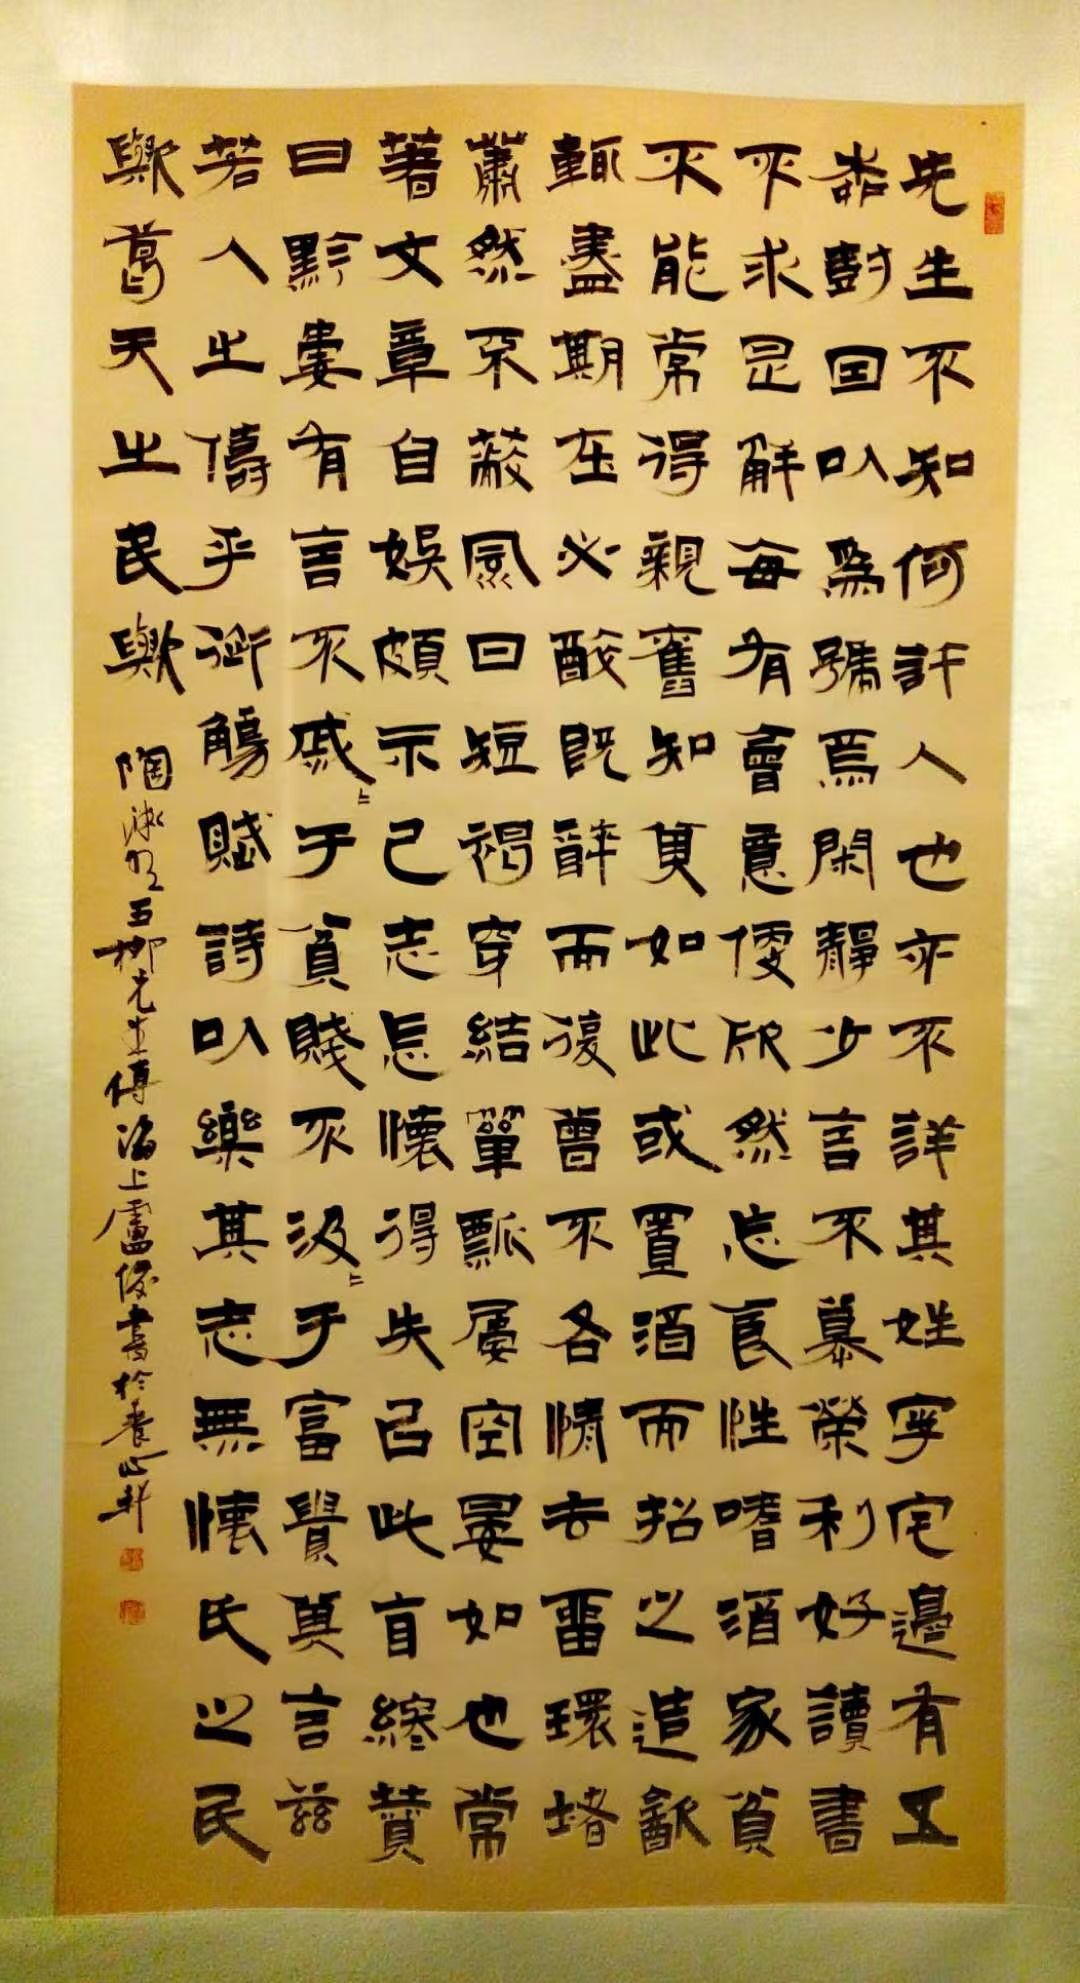 先生不知何許人也亦不詳其姓字宅邊有五
柳樹因以爲號焉閑靜少言不慕榮利好讀書
不求甚解每有會意便欣然忘食性嗜酒家貧
不能常得親舊知其如此或置酒而招之造飲
輒盡期在必醉既醉而退曾不吝情去留環堵
蕭然不蔽風日短褐穿結簞瓢屢空晏如也常
著文章自娛頗示己志忘懷得失以此自終贊
曰黔婁有言不戚〻于貧賤不汲〻于富貴其言茲
若人之儔乎銜觴賦詩以樂其志無懷氏之民
歟葛天之民歟 陶淵明五柳先生傳海上盧俊書於養心軒